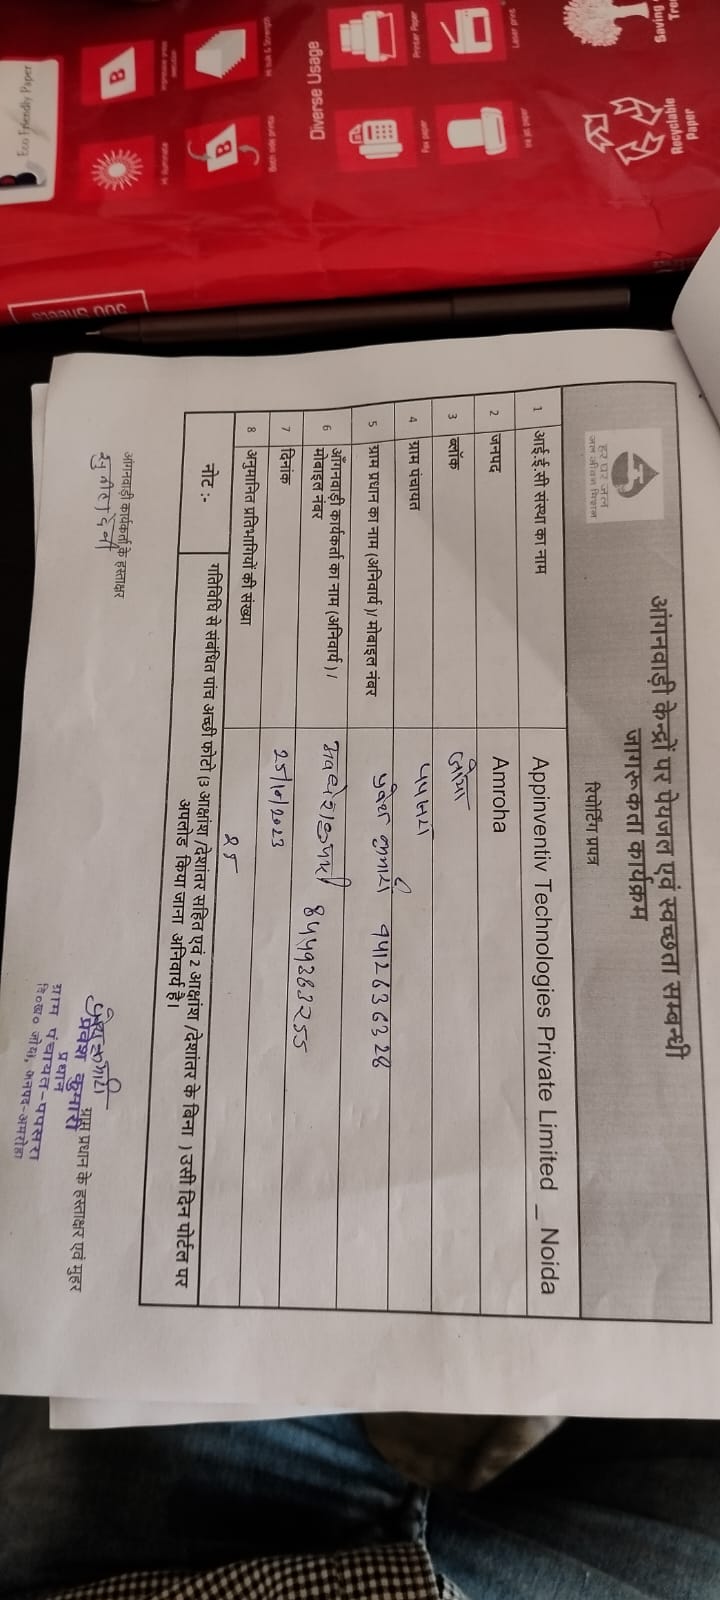 Eco Friendly Paper
Diverse Usage
Printer Paper
Laser print
Fax paper
Both side prints
Hi bulk & Strength
Saving
Tree
Recyclable
Paper
500 Sheets
हर घर जल
जल जीवन मिशन
आंगनवाड़ी केन्द्रों पर पेयजल एवं स्वच्छता सम्बन्धी
जागरूकता कार्यक्रम
रिपोर्टिंग प्रपत्र
1 आई.ई.सी संस्था का नाम Appinventiv Technologies Private Limited _ Noida
2 जनपद Amroha
3 ब्लॉक जोया
4 ग्राम पंचायत पपसरा
5 ग्राम प्रधान का नाम (अनिवार्य)/ मोबाइल नंबर प्रवेश कुमारी 9412636328
6 आँगनवाड़ी कार्यकर्ता का नाम (अनिवार्य)/
मोबाइल नंबर
7 दिनांक
8 अनुमानित प्रतिभागियों की संख्या २५
नोट :- गतिविधि से संबंधित पांच अच्छी फोटो (3 आक्षांश /देशांतर सहित एवं 2 आक्षांश /देशांतर के बिना ) उसी दिन पोर्टल पर
अपलोड किया जाना अनिवार्य है।
आंगनवाड़ी कार्यकर्ता के हस्ताक्षर
ग्राम प्रधान के हस्ताक्षर एवं मुहर
प्रवेश कुमारी
प्रधान
ग्राम पंचायत-पपसरा
वि०ख० जोया, जनपद-अमरोहा